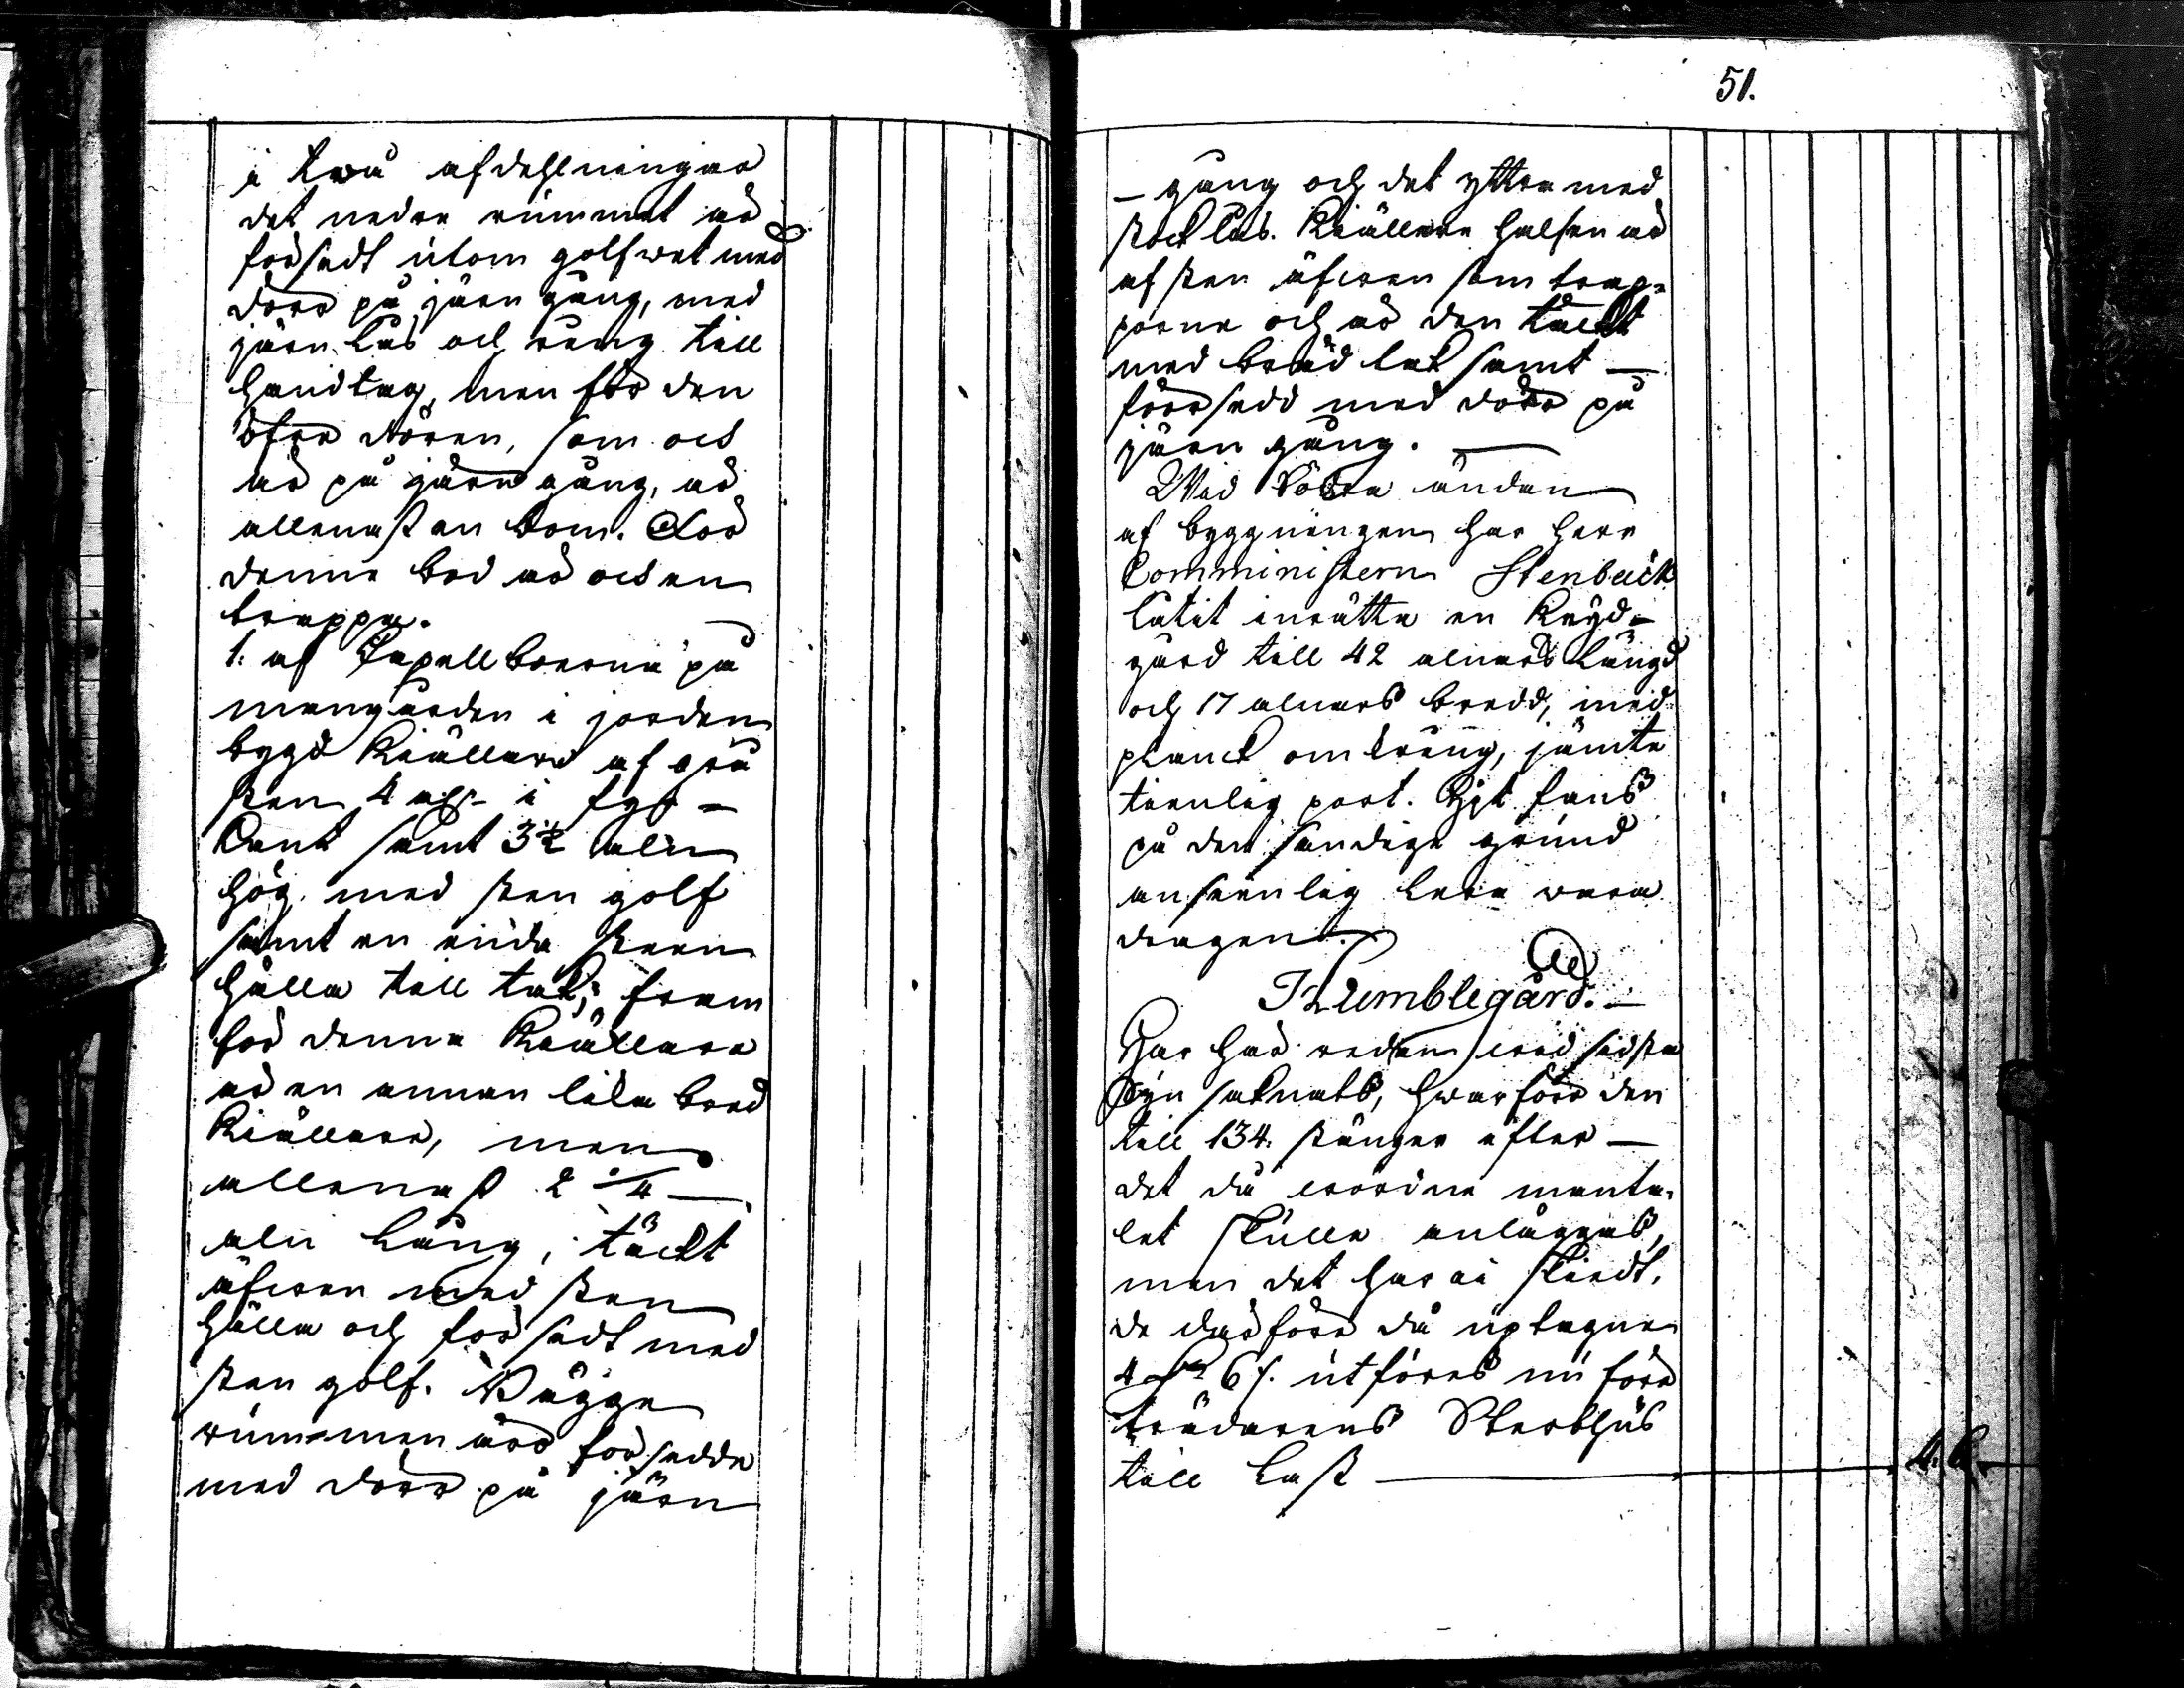 i twå afdehlningar
det nedre rummet är
försedt utom golfwet med
dörr på järn gång, med
järn lås och ring till
handtag, men för den
öfre dören, som ock
är på järn gång, är
allenast en bom. För
denne bod är ock en
trappa.
1: af Capellboerne på
mangården i jorden
bygd Kiällare af grå
sten 4 aln: i fyr-
kant samt 3 1/2 aln
hög. med sten golf
samt en enda steen
hälla till tak; fram
för denna Kiällare
är en annan lika bred
Kiällare, men
allenast 2 1/4
aln lång, täckt
äfwen med sten
hälla och försedt med
sten golf. Bägge
rummen äro försedde
med dörr på järn
51.
- gång och det yttre med
stocklås. Kiällare halsen är
af sten äfwen som trap-
porne och är den täckt
med bräd tak samt
försedd med dörr på
järn gång.
Wid södra ändan
af byggningen har herr
Comministern Stenbäck
låtit inrätta en Kryd-
gård till 42 alnars längd
och 17 alnars bredd, med
planck omkring, jämte
tienlig port. Hit fans
på den sandige grund
ansenlig lera wara
dragen.
Humblegård.
Har här redan wid sidsta
Syn saknats, hwarföre den
till 134. stänger efter
det då wordne manta-
let skulle anläggas,
men det har ei skiedt,
de därföre då uptagne
4 6 s. utföres nu före
trädarens Sterbhus
till Last
4. 6.